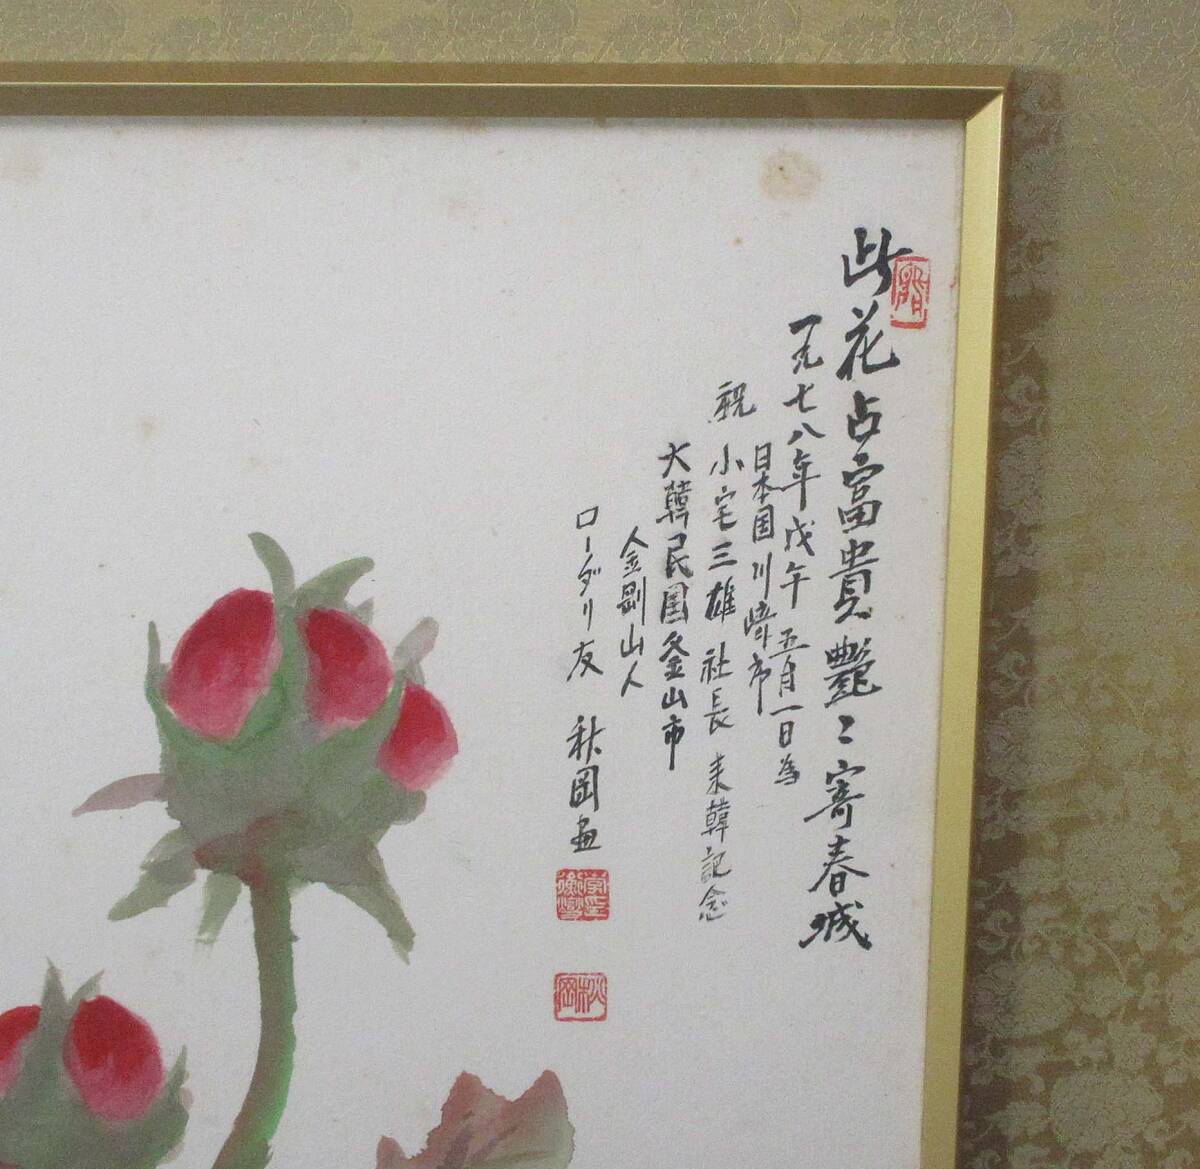 此花占富貴艷〻寄春城
一九七八年戊午五月一日為
日本国川崎市
祝小宅三雄社長来韓記念
大韓民国釜山市
金剛山人
ロータリ友秋岡画
秋岡